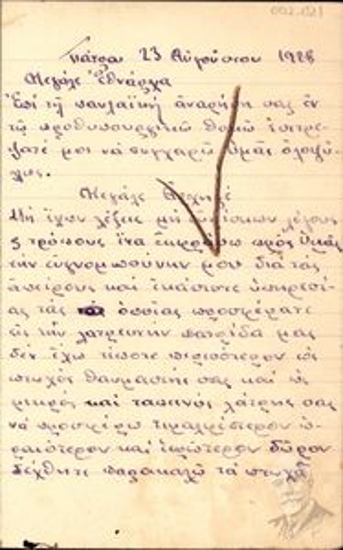 Πάτραι 23 Αὐγούστου 1928
Μεγάλε Ἐθνάρχα
Ἐπὶ τῇ παλλαϊκῇ ἀναρήσῃ σας ἐν
τῷ προθυπουργικῷ θώκῳ ἐπιτρέ-
ψατέ μοι νὰ συγχαρῶ ὑμᾶς ὁλοψύ-
χως.
Μεγάλε Ἀρχηγέ
Μὴ ἔχων λέξεις μὴ λόγους
ϛ τρόπους ἵνα ἐκφράσω πρὸς ὑμᾶς
τὴν εὐγνομωσύνην μου διὰ τὰς
ἀπείρους καὶ ἑκάστοτε ὑπηρεσί-
ας τὰς ὁποίας προσφέρατε
εἰς τὴν λατρευτὴν πατρίδα μας
δὲν ἔχω τίποτε περισότερον ὡς
πτωχὸς θαυμαστής σας καὶ ὡς
μικρὸς καὶ ταπεινὸς λάτρης σας
νὰ προσφέρω τιμαλφέστερον ὡ-
ραιότερον καὶ δῶρον
δεχθῆτε παρακαλῶ τὰ πτωχὰ